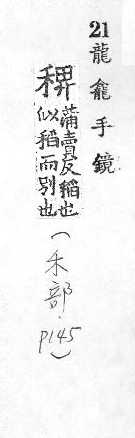 21龍龕手鏡
稗蒲賣反稻也
似稻而別也
(禾部.
P145)